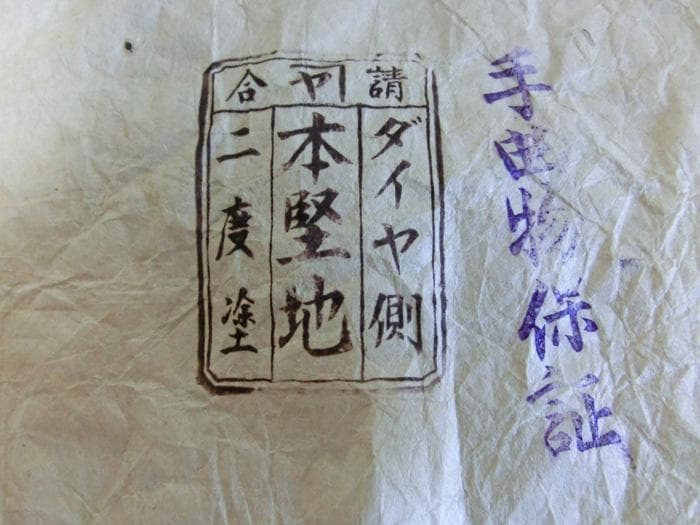 手曲物保証
請 ヤ 合
ダイヤ側
本堅地
二度塗